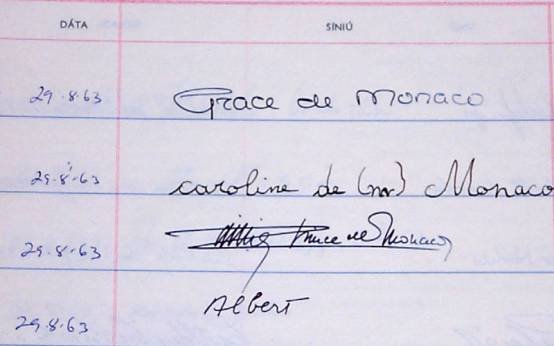 DÁTA SÍNIÚ
29.8.63 Grace de Monaco
29.8.63 caroline de (nr) Monaco
29.8.63 Prince de Monaco
29.8.63 Albert